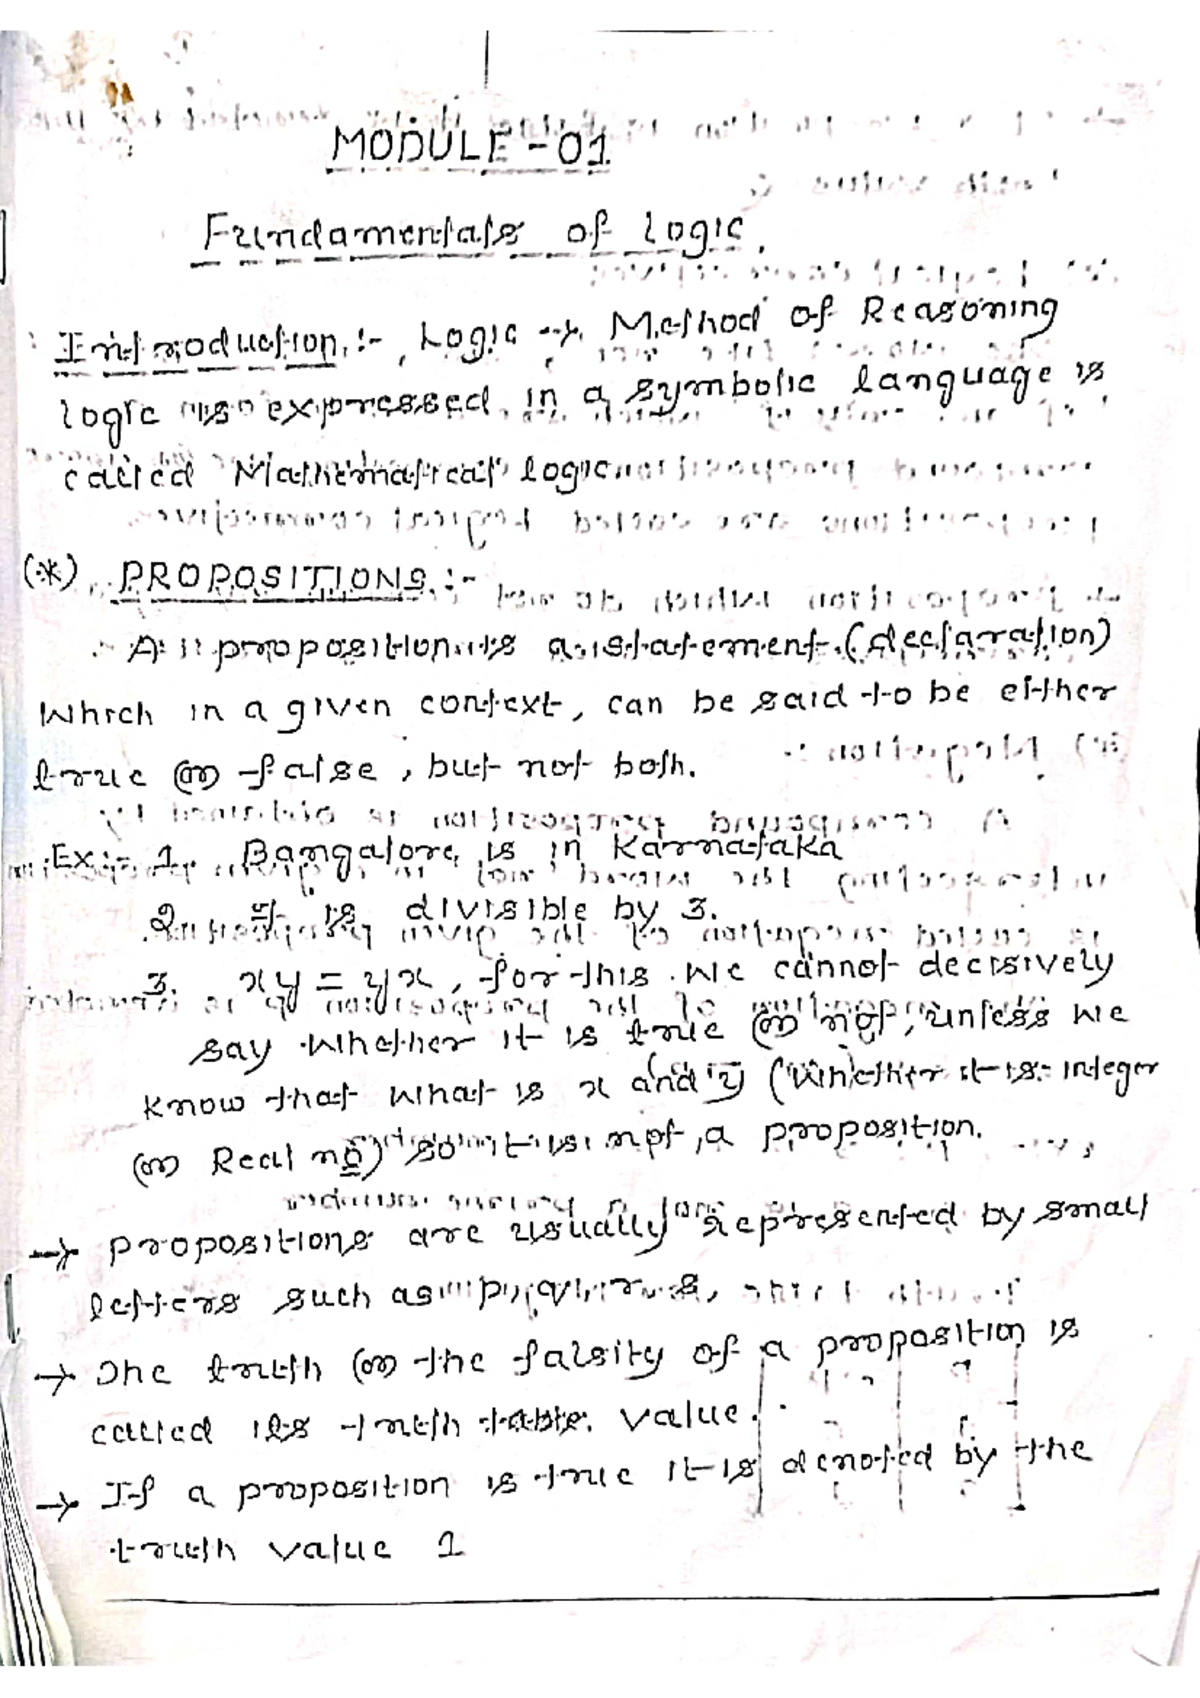 MODULE-01
Fundamentals of Logic.
Introduction :- Logic → Method of Reasoning
logic is expressed in a symbolic language is
called Mathematical logic
(*) PROPOSITIONS :-
A proposition is a statement (declaration)
Which in a given context, can be said to be either
true (or) false, but not both.
Ex:- 1. Bangalore is in Karnataka
2. is divisible by 3.
3. xy = yx, for this we cannot decisively
say whether it is true (or) not, unless we
know that what is x and y (whether it is integer
(or) Real no) so it is not a proposition.
→ propositions are usually represented by small
letters such as p, q, r, s,
→ The truth (or) the falsity of a proposition is
called its truth value.
→ If a proposition is true it is denoted by the
truth value 1